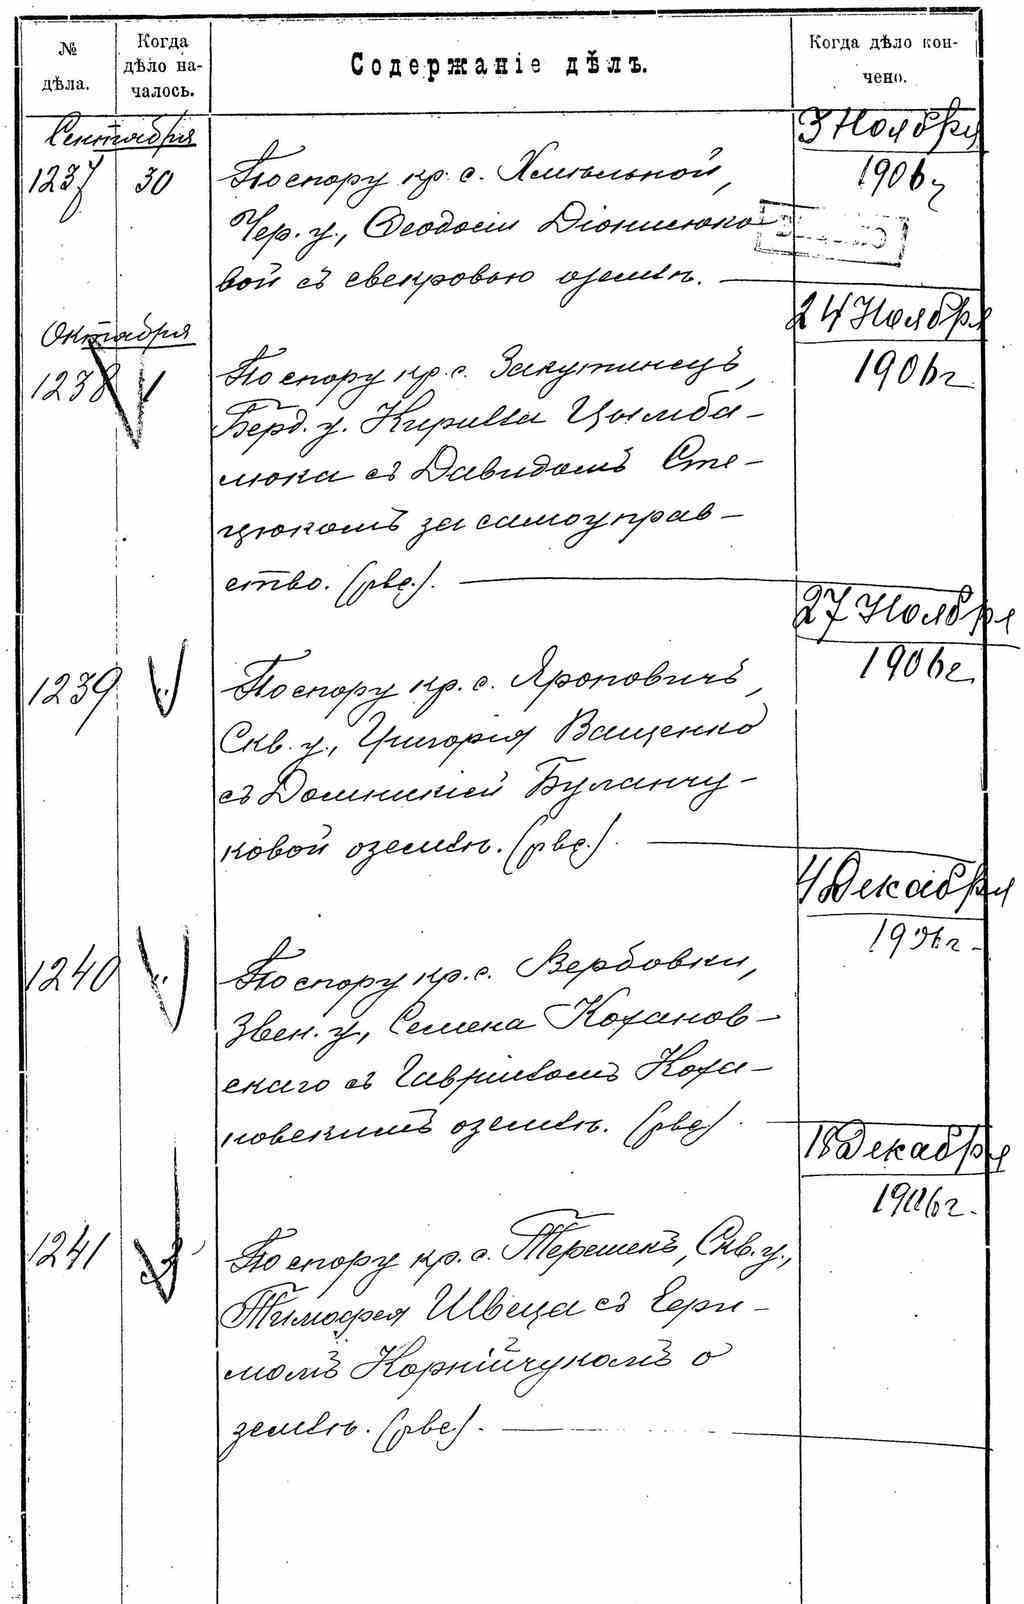 № дѣла.
Когда дѣло на-
чалось.
Содержаніе дѣлъ.
Когда дѣло кон-
чено.
Сентября
3 Ноября
1237 30 По спору кр. с. Хмельной, 1906 г.
Чер. у., Ѳеодосіи Діонисюко-
вой съ свекровью о землѣ.
Октября
24 Ноября
1238 1 По спору кр. с. Закутинецъ, 1906 г.
Берд. у. Кирилла Цымба-
люка съ Давидомъ Сте-
цюкомъ за самоуправ-
ство. (рвс.).
27 Ноября
1239 " По спору кр. с. Яроповичъ, 1906 г.
Скв. у., Григорія Ващенко
съ Домникіей Буланчу-
ковой о землѣ. (рвс.).
4 Декабря
1906 г.
1240 " По спору кр. с. Вербовки,
Звен. у., Семена Коханов-
скаго съ Гавріиломъ Коха-
новскимъ о землѣ. (рвс.).
18 Декабря
1906 г.
1241 По спору кр. с. Терешекъ, Скв. у.,
Тимофея Швеца съ Ефри-
момъ Корнійчукомъ о
землѣ. (рвс.).